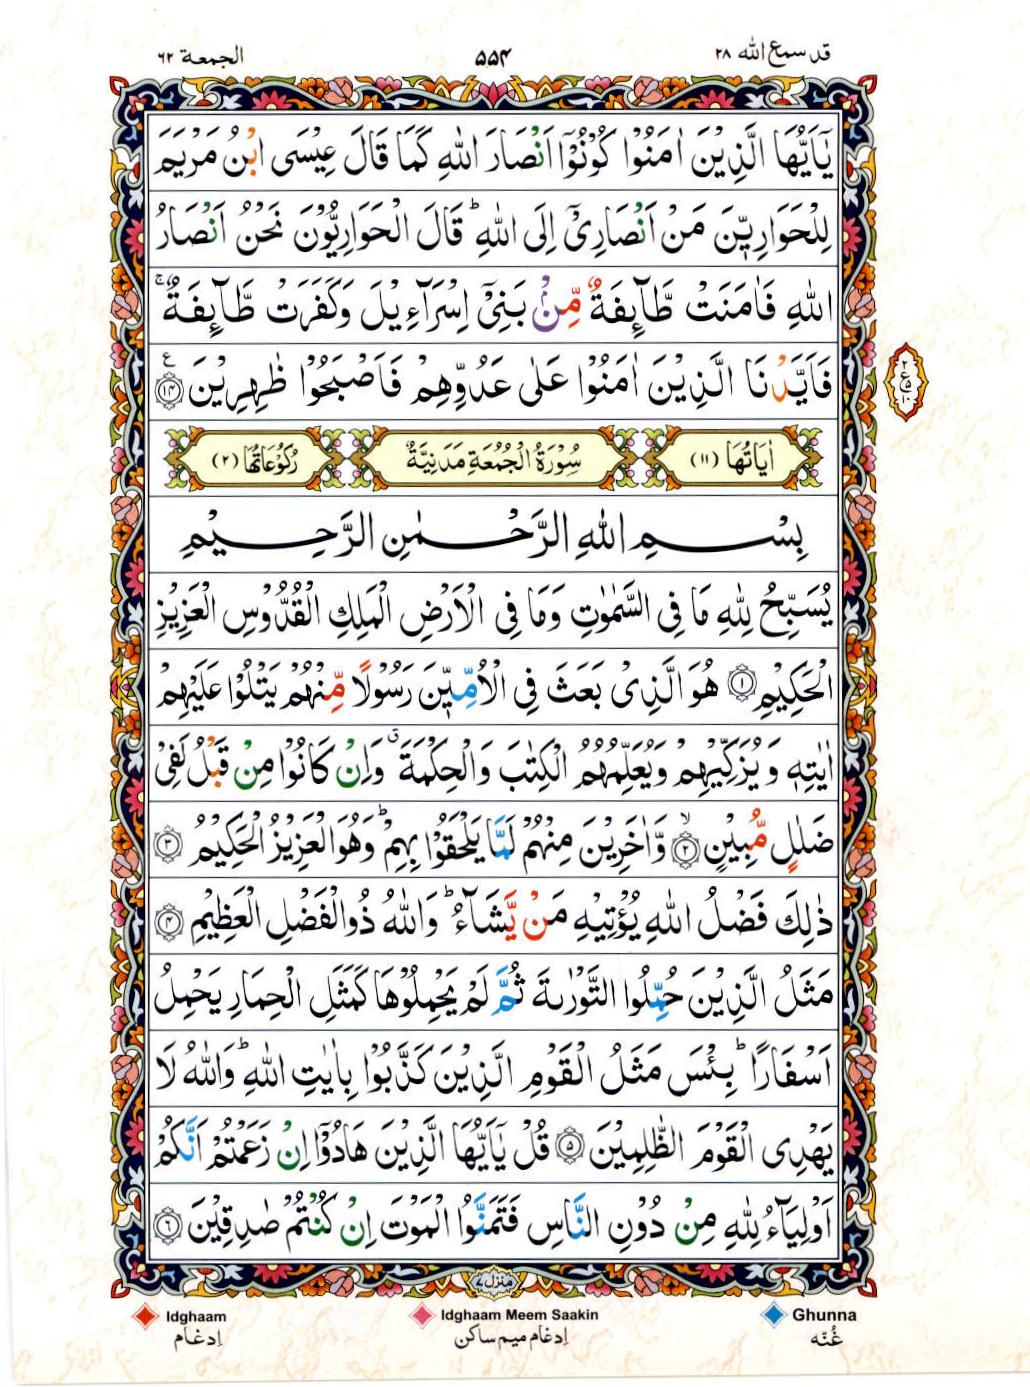 قد سمع الله ٢٨
٥٥٤
الجمعة ٦٢
يٰۤاَيُّهَا الَّذِيْنَ اٰمَنُوْا كُوْنُوْۤا اَنْصَارَ اللّٰهِ كَمَا قَالَ عِيْسَى ابْنُ مَرْيَمَ
لِلْحَوَارِيّٖنَ مَنْ اَنْصَارِيْۤ اِلَى اللّٰهِ ؕ قَالَ الْحَوَارِيُّوْنَ نَحْنُ اَنْصَارُ
اللّٰهِ فَاٰمَنَتْ طَّآىِٕفَةٌ مِّنْۢ بَنِيْۤ اِسْرَآءِيْلَ وَكَفَرَتْ طَّآىِٕفَةٌ ۚ
فَاَيَّدْنَا الَّذِيْنَ اٰمَنُوْا عَلٰى عَدُوِّهِمْ فَاَصْبَحُوْا ظٰهِرِيْنَ ﴿١٤﴾ ع
اٰيَاتُهَا (١١)
سُوْرَةُ الْجُمُعَةِ مَدَنِيَّةٌ
رُكُوْعَاتُهَا (٢)
بِسْمِ اللّٰهِ الرَّحْمٰنِ الرَّحِيْمِ
يُسَبِّحُ لِلّٰهِ مَا فِى السَّمٰوٰتِ وَمَا فِى الْاَرْضِ الْمَلِكِ الْقُدُّوْسِ الْعَزِيْزِ
الْحَكِيْمِ ﴿١﴾ هُوَ الَّذِىْ بَعَثَ فِى الْاُمِّيّٖنَ رَسُوْلًا مِّنْهُمْ يَتْلُوْا عَلَيْهِمْ
اٰيٰتِهٖ وَيُزَكِّيْهِمْ وَيُعَلِّمُهُمُ الْكِتٰبَ وَالْحِكْمَةَ ۗ وَاِنْ كَانُوْا مِنْ قَبْلُ لَفِىْ
ضَلٰلٍ مُّبِيْنٍ ۙ﴿٢﴾ وَّاٰخَرِيْنَ مِنْهُمْ لَمَّا يَلْحَقُوْا بِهِمْ ؕ وَهُوَ الْعَزِيْزُ الْحَكِيْمُ ﴿٣﴾
ذٰلِكَ فَضْلُ اللّٰهِ يُؤْتِيْهِ مَنْ يَّشَآءُ ؕ وَاللّٰهُ ذُو الْفَضْلِ الْعَظِيْمِ ﴿٤﴾
مَثَلُ الَّذِيْنَ حُمِّلُوا التَّوْرٰىةَ ثُمَّ لَمْ يَحْمِلُوْهَا كَمَثَلِ الْحِمَارِ يَحْمِلُ
اَسْفَارًا ؕ بِئْسَ مَثَلُ الْقَوْمِ الَّذِيْنَ كَذَّبُوْا بِاٰيٰتِ اللّٰهِ ؕ وَاللّٰهُ لَا
يَهْدِى الْقَوْمَ الظّٰلِمِيْنَ ﴿٥﴾ قُلْ يٰۤاَيُّهَا الَّذِيْنَ هَادُوْۤا اِنْ زَعَمْتُمْ اَنَّكُمْ
اَوْلِيَآءُ لِلّٰهِ مِنْ دُوْنِ النَّاسِ فَتَمَنَّوُا الْمَوْتَ اِنْ كُنْتُمْ صٰدِقِيْنَ ﴿٦﴾
منزل ٧
Idghaam
Idghaam Meem Saakin
Ghunna
اِدغام
اِدغام میم ساکن
غُنّه